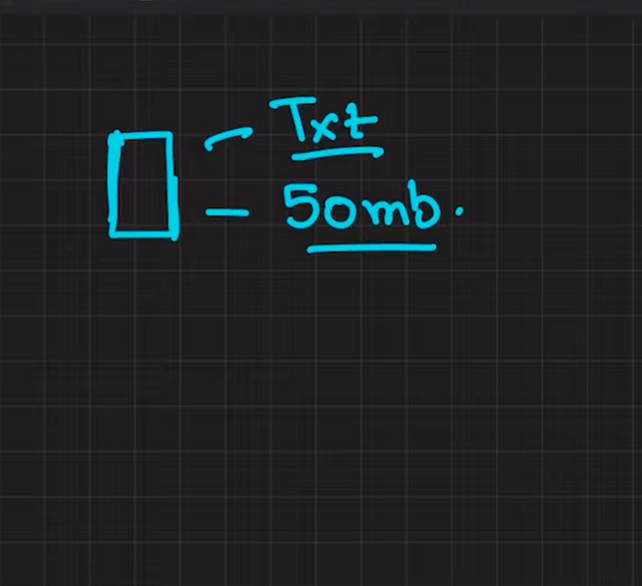 Txt
50mb.